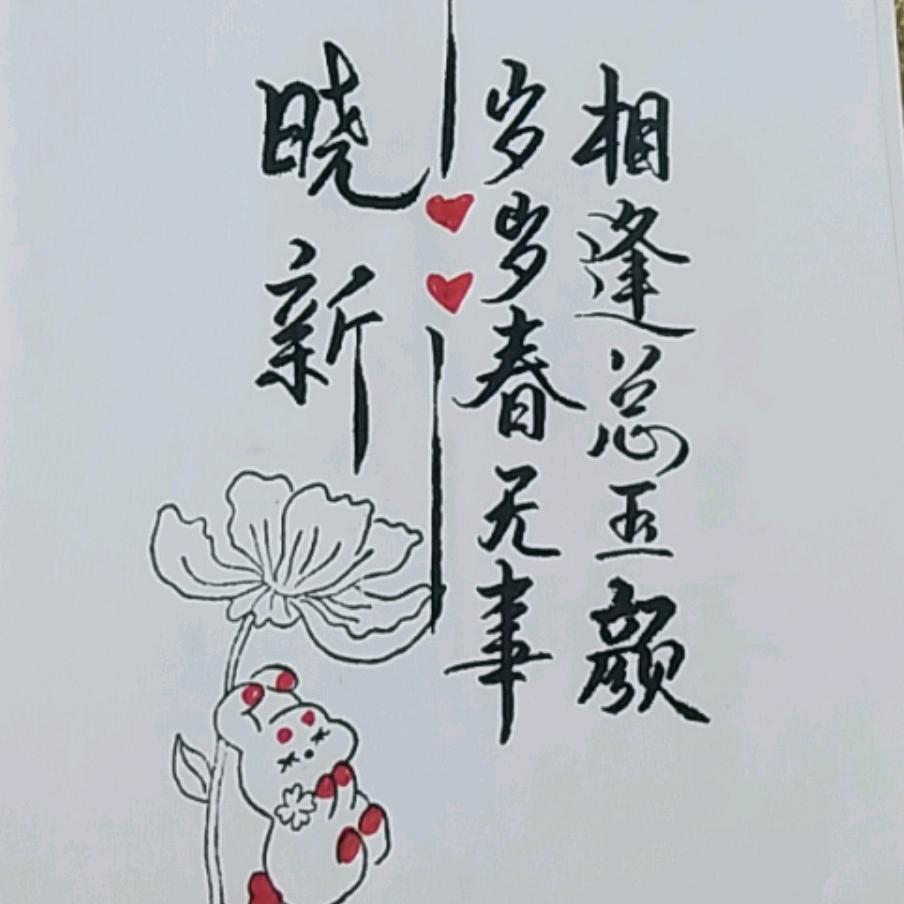 相逢总玉颜
岁岁春无事
晓新